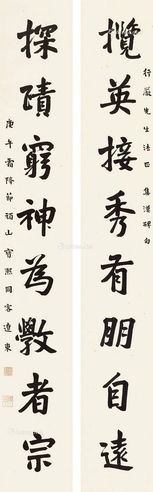 行嚴先生法正 集漢碑句
攬英接秀有朋自遠
探賾窮神為斆者宗
庚午霜降節頑山寶熙同客遼東